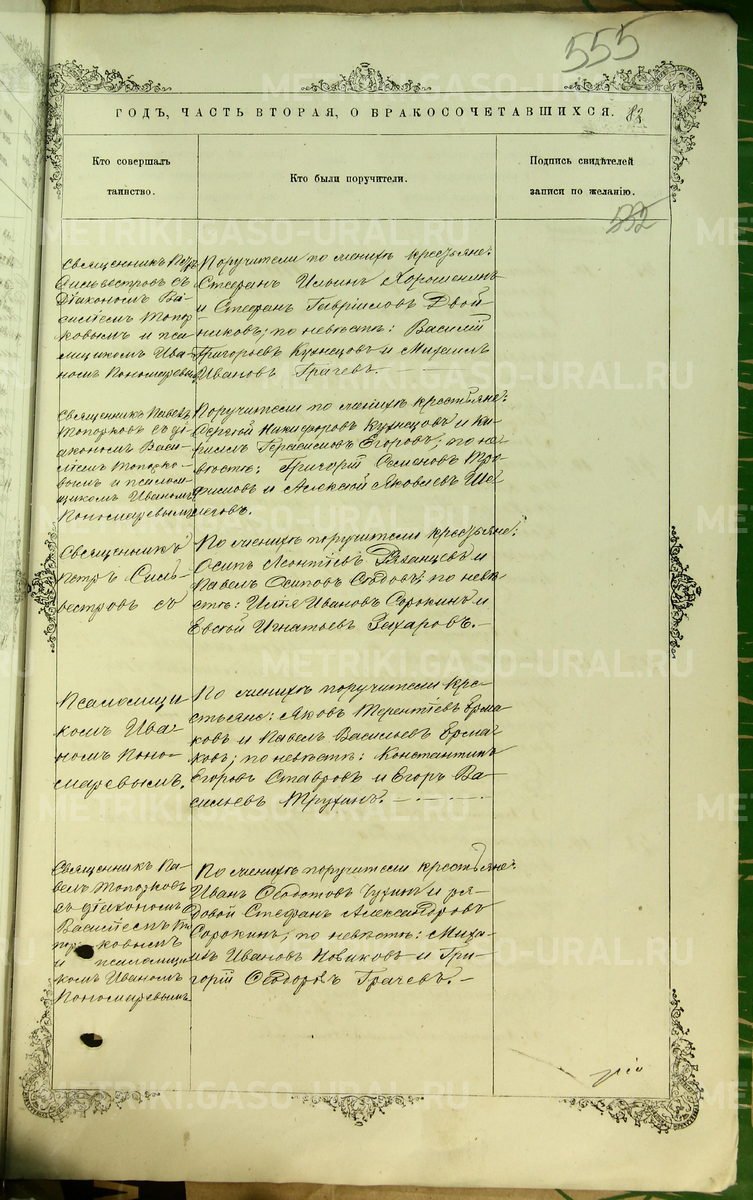 555
ГОДЪ, ЧАСТЬ ВТОРАЯ, О БРАКОСОЧЕТАВШИХСЯ.
Кто совершалъ
таинство.
Кто были поручители.
Подпись свидѣтелей
записи по желанію.
532
Священникъ Петръ
Сильвестровъ съ
Діакономъ Ва-
силіемъ Топор-
ковымъ и пса-
ломщикомъ Ива-
номъ Пономаревымъ
Поручители по женихѣ крестьяне:
Стефанъ Ильинъ Хорошенинъ
и Стефанъ Гавріиловъ Двой-
никовъ; по невѣстѣ: Василій
Григорьевъ Кузнецовъ и Михаилъ
Ивановъ Грачевъ.
Священникъ Павелъ
Топорковъ съ ді-
акономъ Васи-
ліемъ Топорко-
вымъ и псалом-
щикомъ Иваномъ
Пономаревымъ
Поручители по женихѣ крестьяне:
Сергій Никифоровъ Кузнецовъ и Ки-
риллъ Герасимовъ Егоровъ; по не-
вѣстѣ: Григорій Семеновъ Тро-
фимовъ и Алексій Яковлевъ Ше-
леговъ.
Священникъ
Петръ Силь-
вестровъ съ
По женихѣ поручители крестьяне:
Осипъ Леонтіевъ Рязанцевъ и
Павелъ Осиповъ Сѣдовъ; по невѣ-
стѣ: Илія Ивановъ Сорокинъ и
Евсей Игнатьевъ Захаровъ.
Псаломщи-
комъ Ива-
номъ Поно-
маревымъ.
По женихѣ поручители кре-
стьяне: Яковъ Терентіевъ Ерма-
ковъ и Павелъ Васильевъ Ерма-
ковъ; по невѣстѣ: Константинъ
Егоровъ Ставровъ и Егоръ Ва-
сильевъ Трухинъ.
Священникъ Па-
велъ Топорковъ
съ діакономъ
Василіемъ То-
порковымъ
и псаломщи-
комъ Иваномъ
Пономаревымъ
По женихѣ поручители крестьяне:
Иванъ Ѳедотовъ Чухинъ и ря-
довой Стефанъ Александровъ
Сорокинъ; по невѣстѣ: Миха-
илъ Ивановъ Новиковъ и Гри-
горій Ѳедоровъ Грачевъ.
METRIKI.GASO-URAL.RU